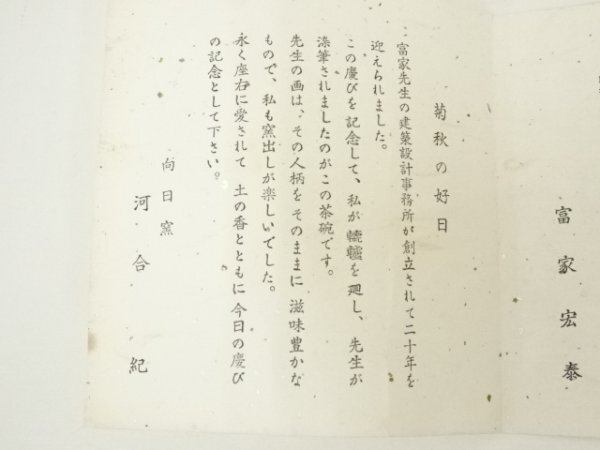 富家宏泰
菊秋の好日
富家先生の建築設計事務所が創立されて二十年を
迎えられました。
この慶びを記念して、私が轆轤を廻し、先生が
染筆されましたのがこの茶碗です。
先生の画は、その人柄をそのままに滋味豊かな
もので、私も窯出しが楽しいでした。
永く座右に愛されて 土の香とともに今日の慶び
の記念として下さい。
向日窯
河合紀